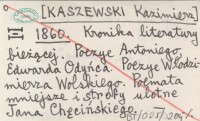 [KASZEWSKI Kazimierz]
1860. Kronika literatury
bieżącej. Poezye Antoniego
Edwarda Odyńca. Poezye Włodzi-
mierza Wolskiego. Poemata
mniejsze i strofy ulotne
Jana Chęcińskiego.